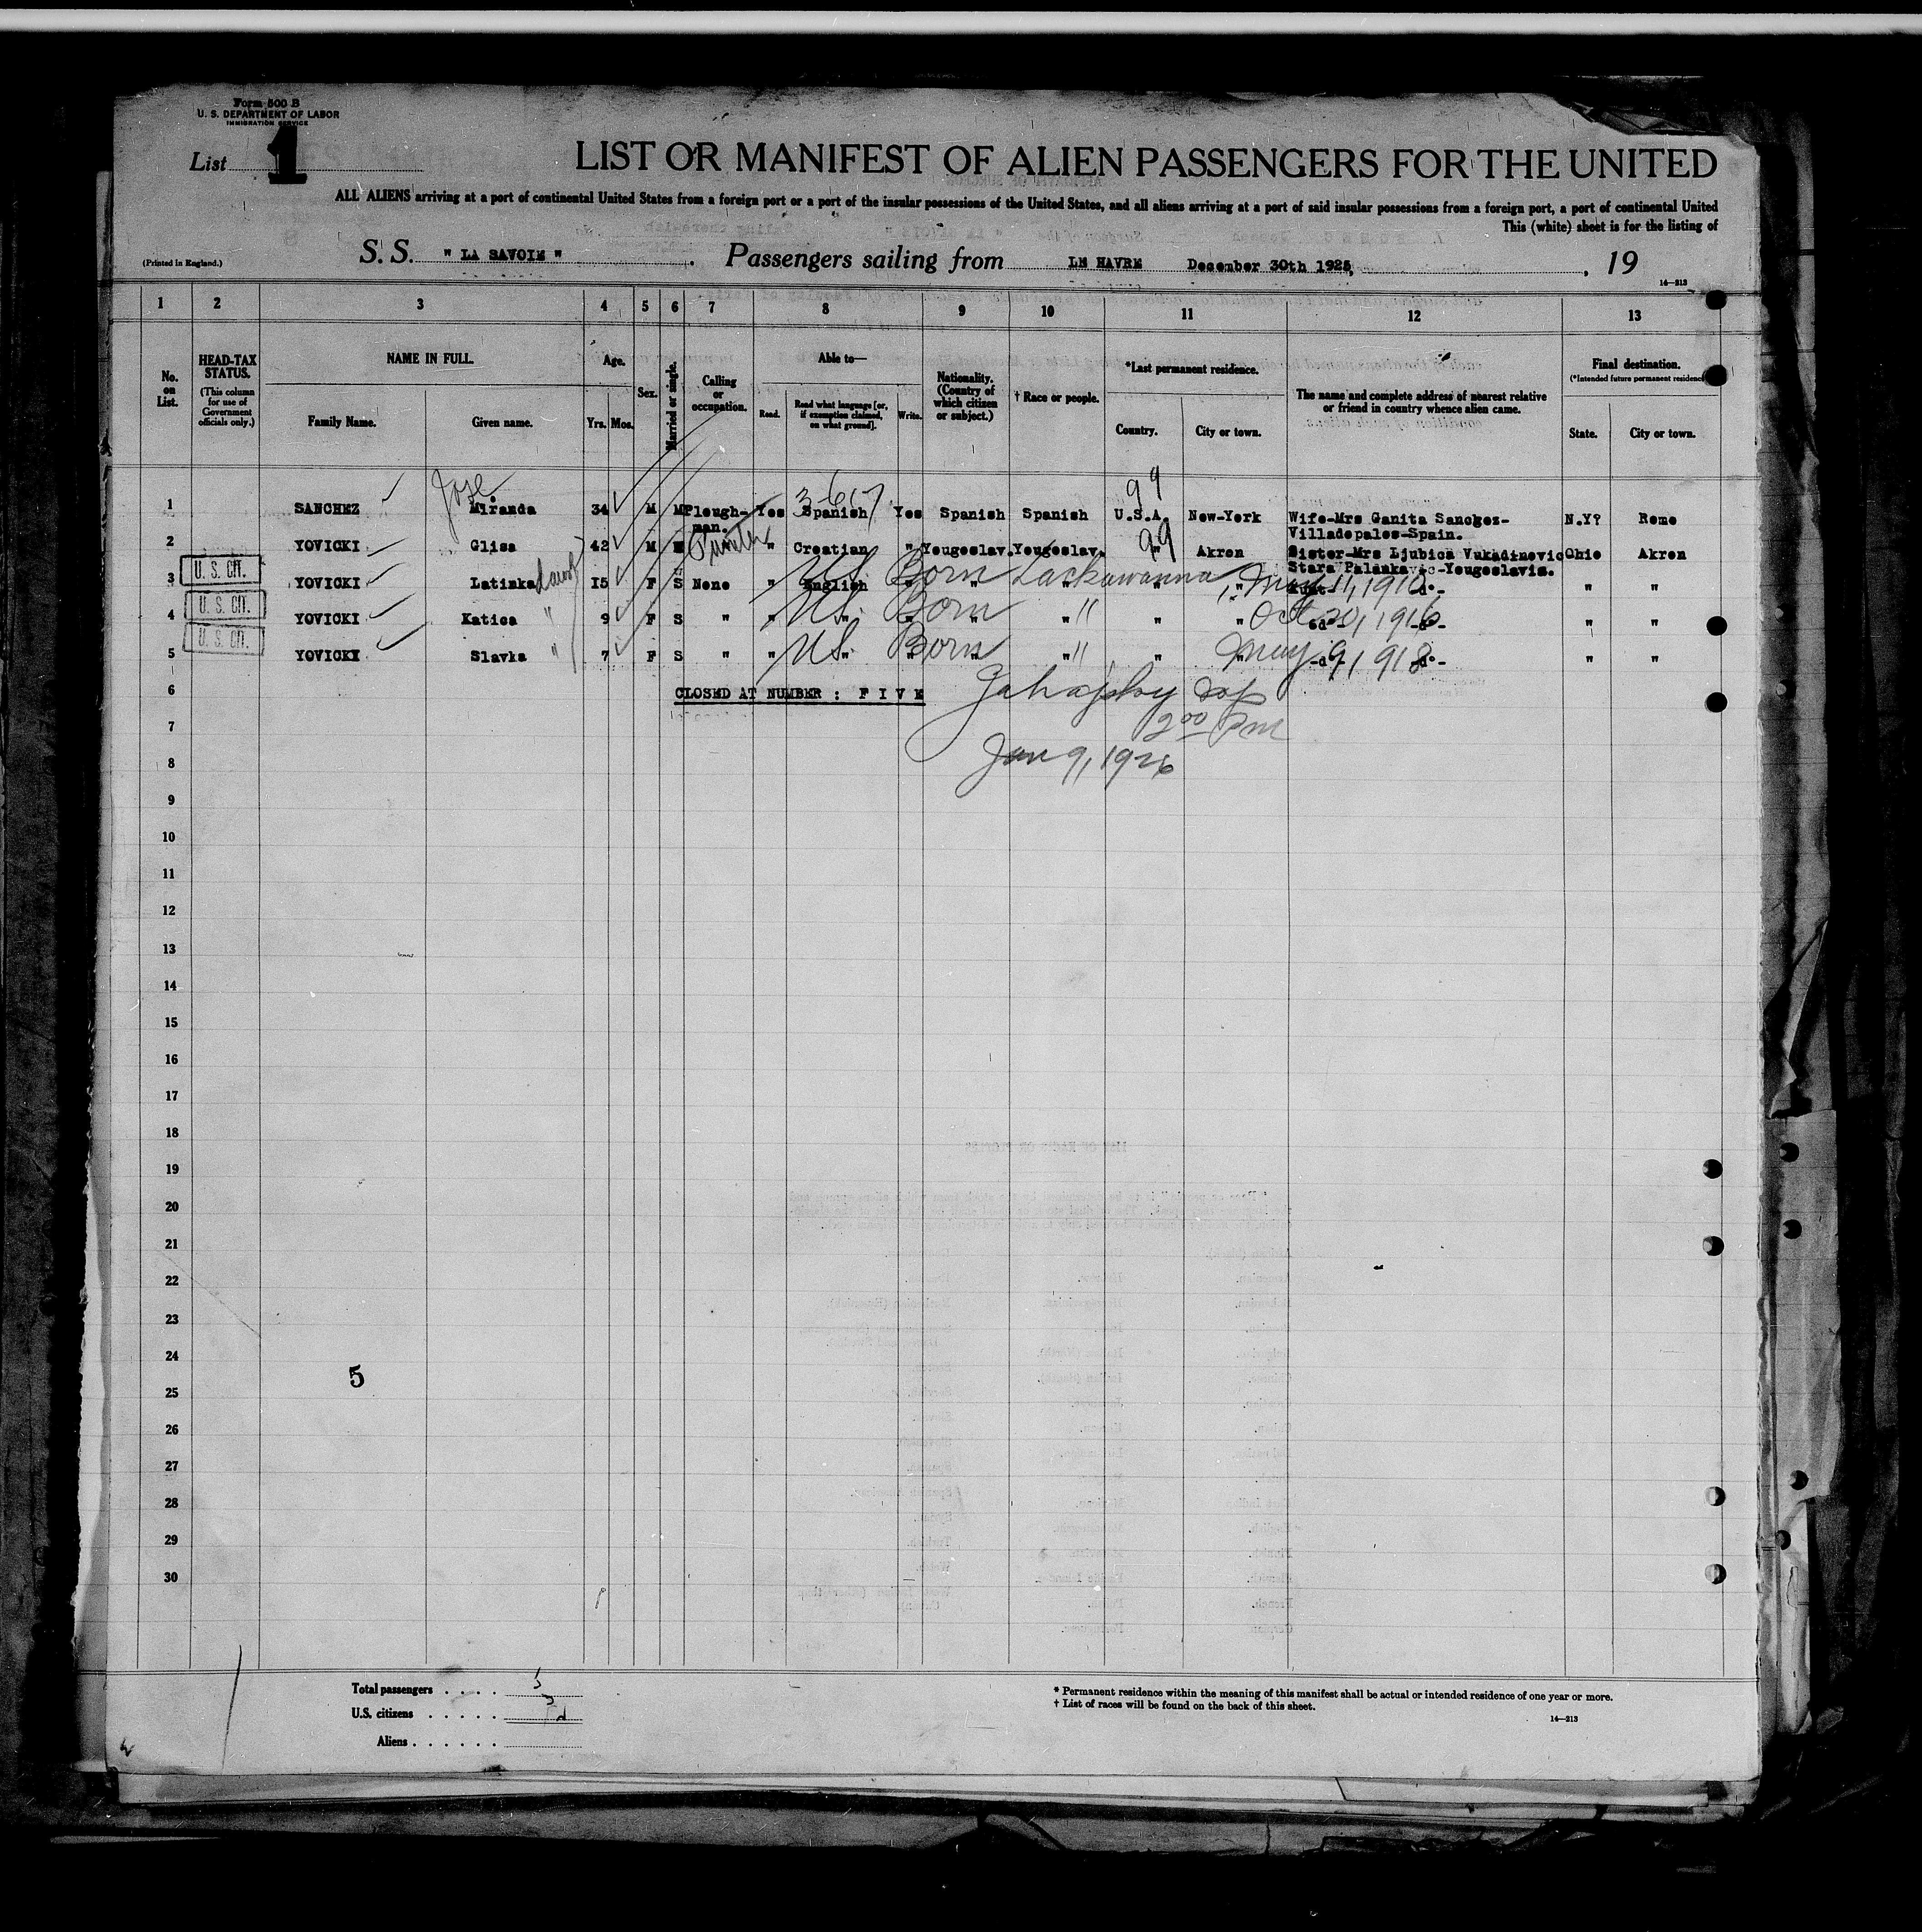 Form 500 B
U. S. DEPARTMENT OF LABOR
IMMIGRATION SERVICE
List 1
LIST OR MANIFEST OF ALIEN PASSENGERS FOR THE UNITED
ALL ALIENS arriving at a port of continental United States from a foreign port or a port of the insular possessions of the United States, and all aliens arriving at a port of said insular possessions from a foreign port, a port of continental United
This (white) sheet is for the listing of
(Printed in England.)
S. S. " LA SAVOIE " . Passengers sailing from LE HAVRE December 30th 1925, , 19
14—213
1 2 3 4 5 6 7 8 9 10 11 12 13
No. on List.
HEAD-TAX STATUS.
(This column for use of Government officials only.)
NAME IN FULL.
Family Name. Given name.
Age.
Yrs. Mos.
Sex.
Married or single.
Calling or occupation.
Able to—
Read. Read what language [or, if exemption claimed, on what ground]. Write.
Nationality. (Country of which citizen or subject.)
† Race or people.
*Last permanent residence.
Country. City or town.
The name and complete address of nearest relative or friend in country whence alien came.
Final destination.
(*Intended future permanent residence
State. City or town.
Jose 3-617 99
1 SANCHEZ Miranda 34 M M Plough- Yes Spanish Yes Spanish Spanish U.S.A. New-York Wife-Mrs Ganita Sanchez- N.Y? Rome
man. Villadepalos-Spain.
2 YOVICKI Glisa 42 M M " Croatian " Yougoslav. Yougoslav. " 99 Akron Sister-Mrs Ljubica Vukadinovic Ohio Akron
Stara Palanka -Yougoslavia.
U. S. CIT. 3 YOVICKI Latinka 15 F S None " English US Born Lackawanna " " May 11, 1910 -d°- " "
U. S. CIT. 4 YOVICKI Katica " 9 F S " " US Born " " " Oct. 20, 1916 -d°- " "
U. S. CIT. 5 YOVICKI Slavka " 7 F S " " US Born " " " May 9, 1918 -d°- " "
6 CLOSED AT NUMBER : F I V E
7 2 00 Pm
8 Jan 9, 1926
9
10
11
12
13
14
15
16
17
18
19
20
21
22
23
24
5
25
26
27
28
29
30
Total passengers . . . . 5
U.S. citizens . . . . .
Aliens . . . . . .
* Permanent residence within the meaning of this manifest shall be actual or intended residence of one year or more.
† List of races will be found on the back of this sheet.
14—213